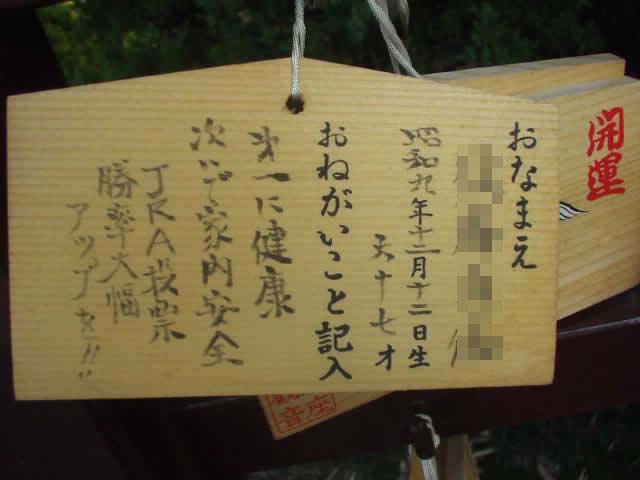 おなまえ
昭和九年十二月十二日生
六十七才
おねがいごと記入
第一に健康
次いで家内安全
JRA投票
勝率大幅
アップを!!
開運